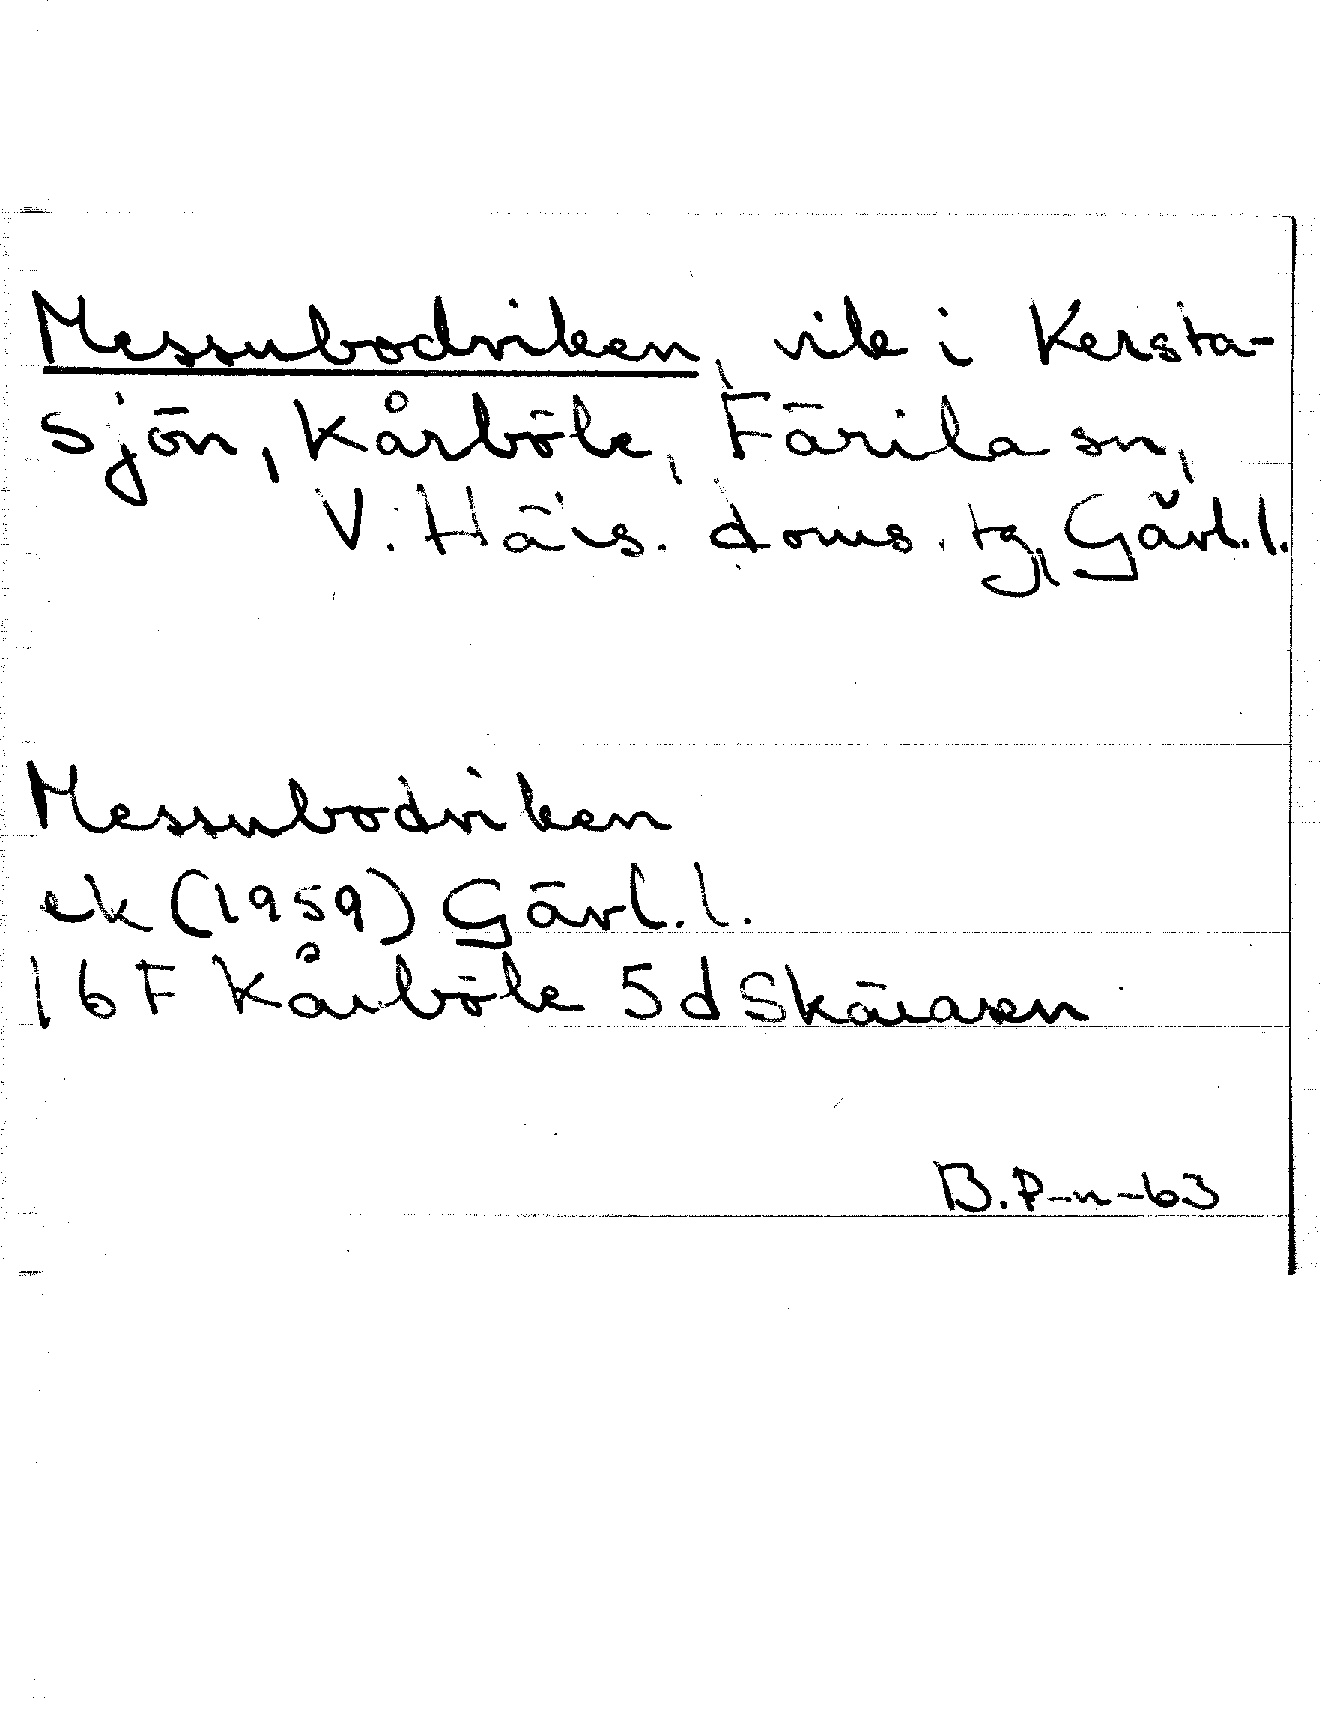 Messubodviken, vik i Kersta-
sjön, Kårböle, Färila sn,
V. Häls. doms. tg, Gävl.l.
Messubodviken
ek (1959) Gävl.l.
16F Kårböle 5d Skäråsen
B.P-n-63